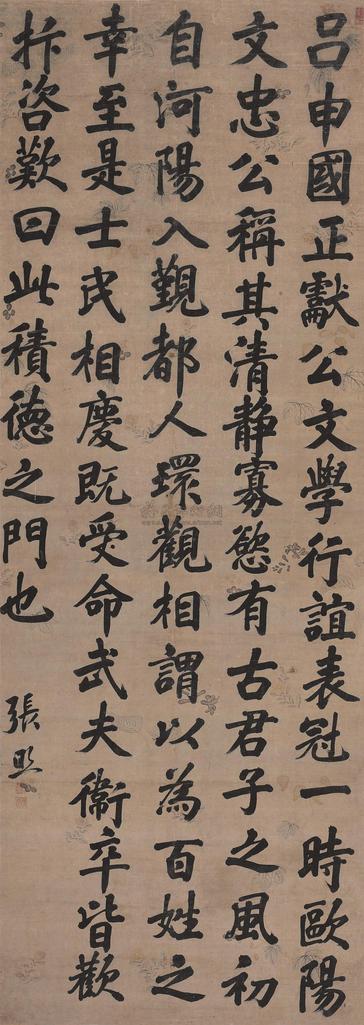 吕申國正獻公文學行誼表冠一時歐陽
文忠公稱其清静寡慾有古君子之風初
自河陽入覲都人環觀相謂以為百姓之
幸至是士民相慶既受命武夫衞卒皆歡
抃咨歎曰此積德之門也
張照